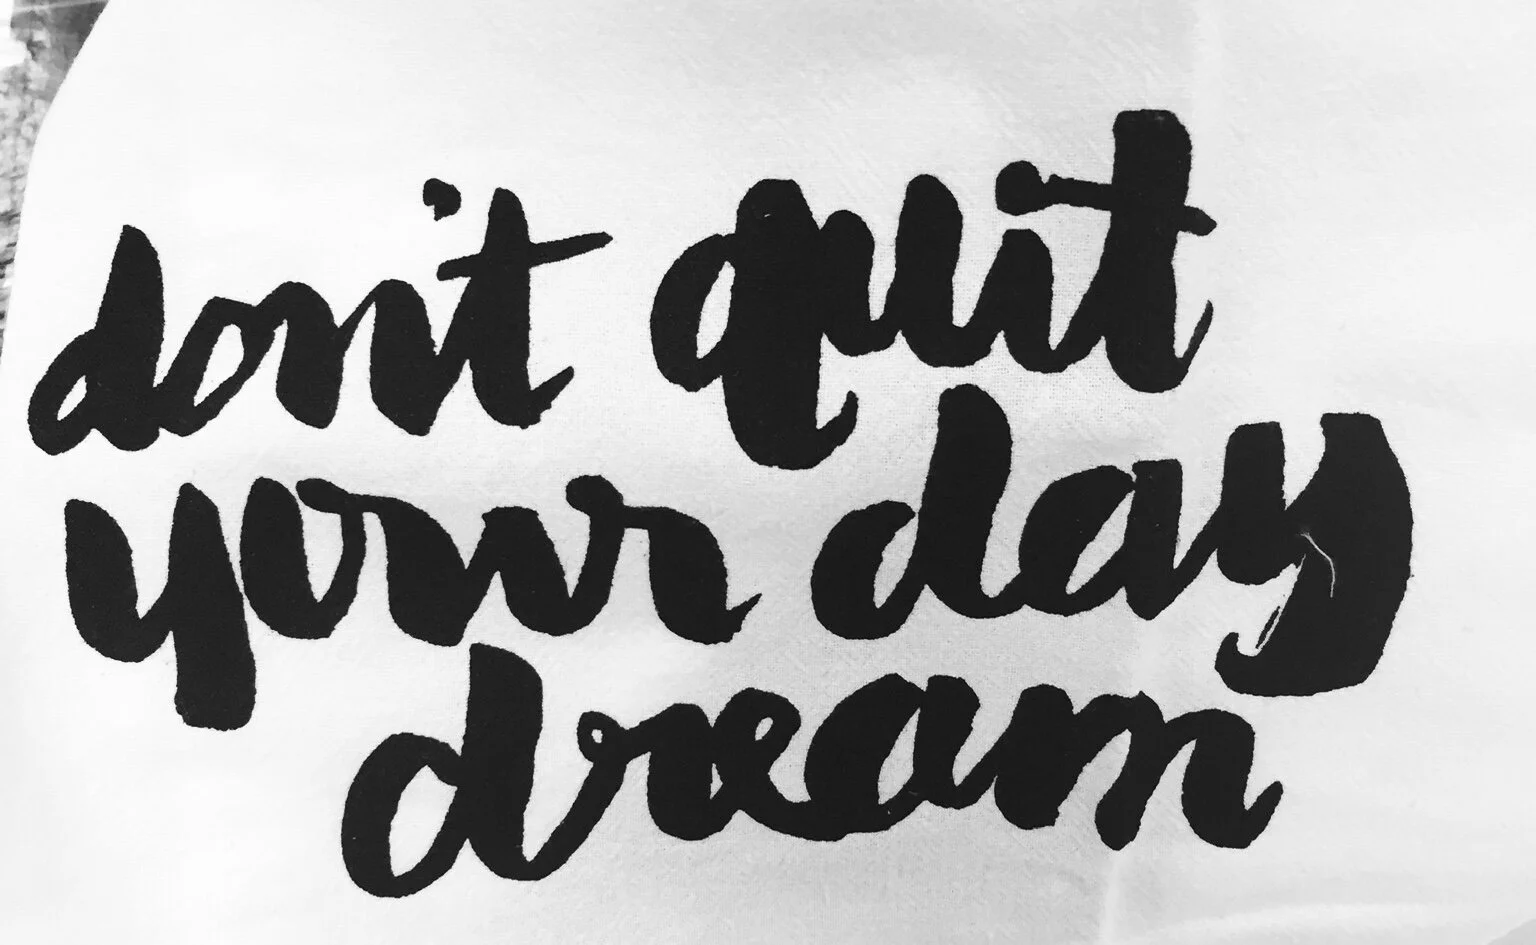 don't quit
your day
dream